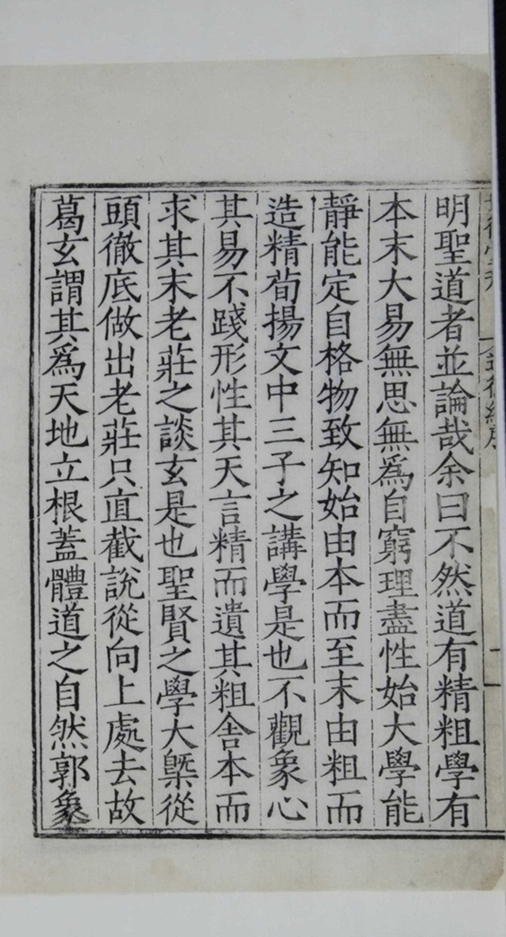 明聖道者並論哉余曰不然道有精粗學有
本末大易無思無為自窮理盡性始大學能
靜能定自格物致知始由本而至末由粗而
造精荀揚文中三子之講學是也不觀象心
其易不踐形性其天言精而遺其粗舍本而
求其末老莊之談玄是也聖賢之學大槩從
頭徹底做出老莊只直截說從向上處去故
葛玄謂其爲天地立根蓋體道之自然郭象